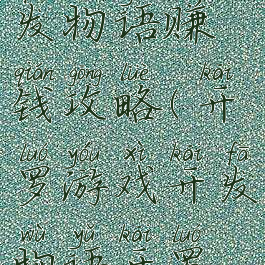 发物语赚
qián gōng lüè kāi
钱攻略(开
luó yóu xì kāi fā
罗游戏开发
wù yǔ kāi luó
物语开罗